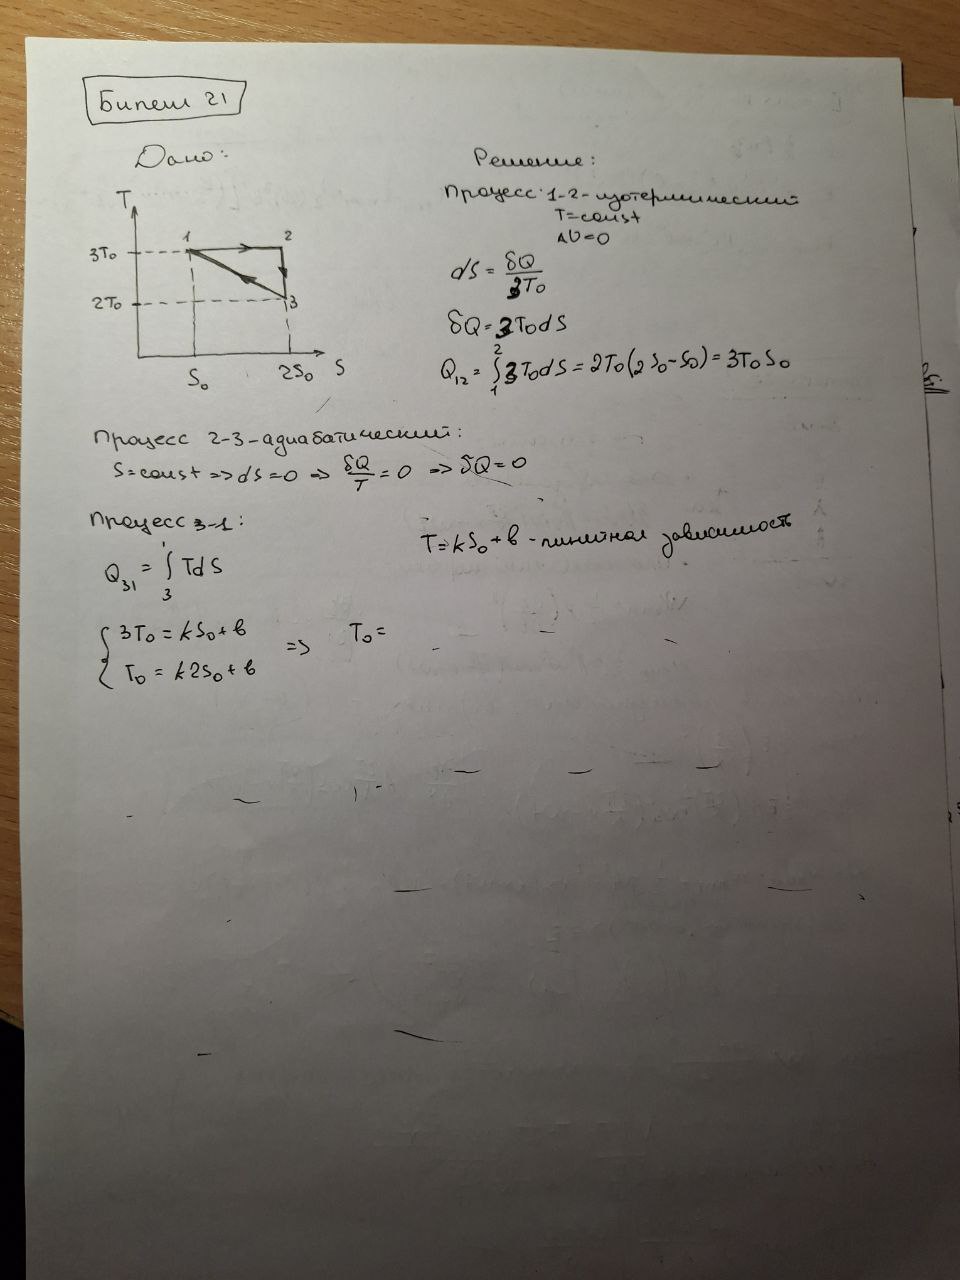 Билет 21
Дано:
T
3T₀
2T₀
1
2
3
S₀
2S₀
S
Решение:
Процесс 1-2 - изотермический
T=const
ΔU=0
dS = δQ/3T₀
δQ = 3T₀dS
Q₁₂ = ∫₁² 3T₀dS = 2T₀(2S₀-S₀) = 3T₀S₀
Процесс 2-3 - адиабатический:
S=const => dS=0 => δQ/T = 0 => δQ=0
Процесс 3-1:
T = kS₀ + в - линейная зависимость
Q₃₁ = ∫₃¹ TdS
{ 3T₀ = kS₀ + в
T₀ = k2S₀ + в
=> T₀ =